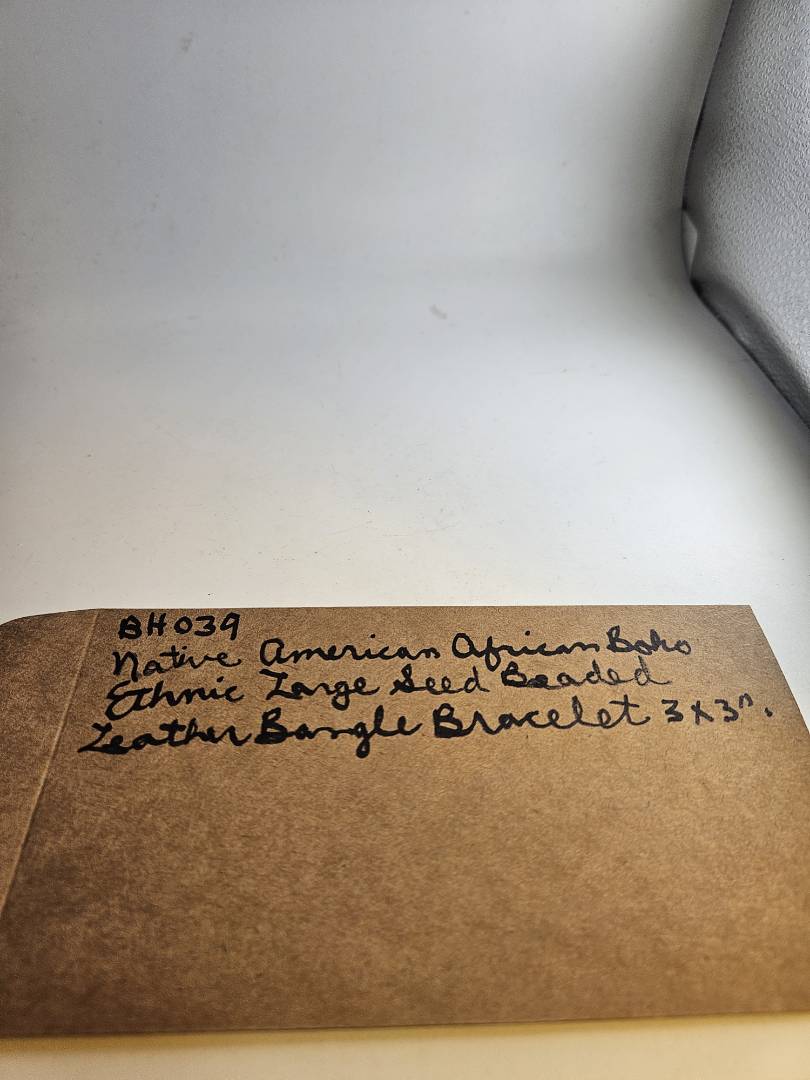 BH039
Native American African Boho
Ethnic Large Seed Beaded
Leather Bangle Bracelet 3 x 3".